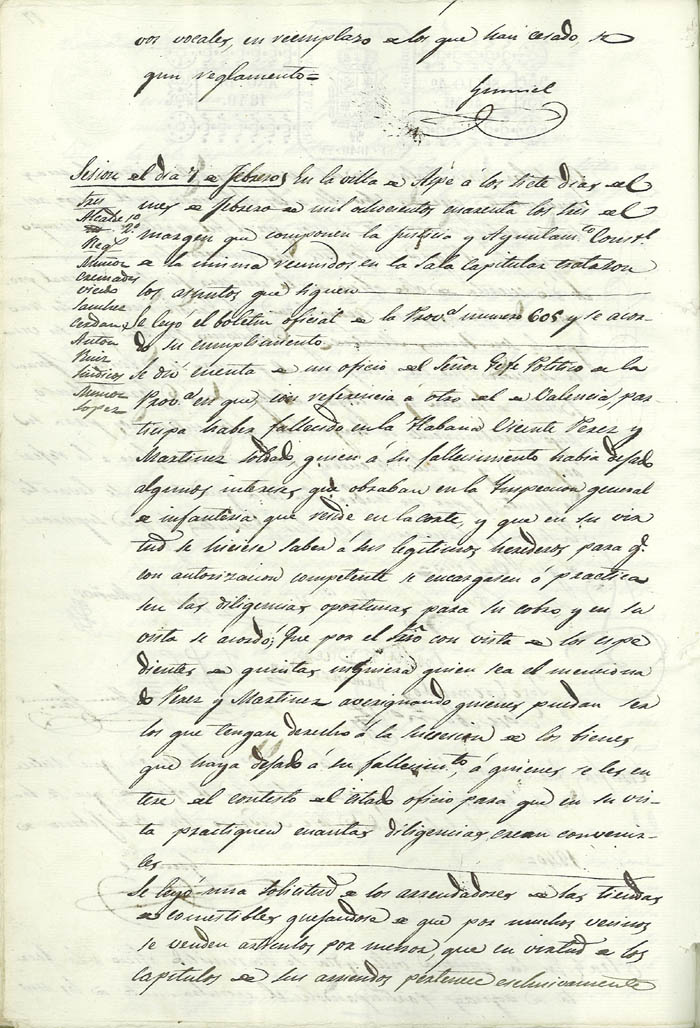 vos vocales, en reemplazo de los que han cesado, se
gun reglamento=
Gumiel
Sesion del dia 7 de febrero
tres
Alcalde 1º
2º
Reg.
Muñoz
Cremades
Sanchez
Cerdan
Anton
Ruiz
Sindicos
Munoz
Lopez
En la villa de Aspe á los siete dias del
mes de febrero de mil ochocientos cuarenta los tres del
margen que componen la Justicia y Ayuntam.to Const.l
de la misma reunidos en la Sala Capitular trataron
los asuntos que siguen
Se leyó el boletin oficial de la Prov.a numero 605 y se acor-
dó su cumplimiento
Se dió cuenta de un oficio del Señor Gefe Politico de la
Prov.a en que, con referencia á otro del de Valencia, par
ticipa haber fallecido en la Habana Vicente Perez y
Martinez soldado, quien á su fallecimiento habia dejado
algunos intereses que obraban en la Inspeccion general
de infanteria que reside en la corte, y que en su vir
tud se hiciese saber á sus legitimos herederos para q.e
con autorizacion competente se encargasen ó practica
sen las diligencias oportunas para su cobro y en su
vista se acordó; Que por el Srio con vista de los espe
dientes de quintas inquiera quien sea el menciona
do Perez y Martinez averiguando quienes puedan ser
los que tengan derecho á la sucesion de los bienes
que haya dejado á su fallecim.to, á quienes se les en
tere del contesto del citado oficio para que en su vis-
ta practiquen cuantas diligencias crean convenien-
les
Se leyó una solicitud de los arrendadores de las tiendas
de comestibles quejandose de que por muchos vecinos
se venden articulos por menor, que en virtud de los
capitulos de sus arriendos pertenece esclusivamente